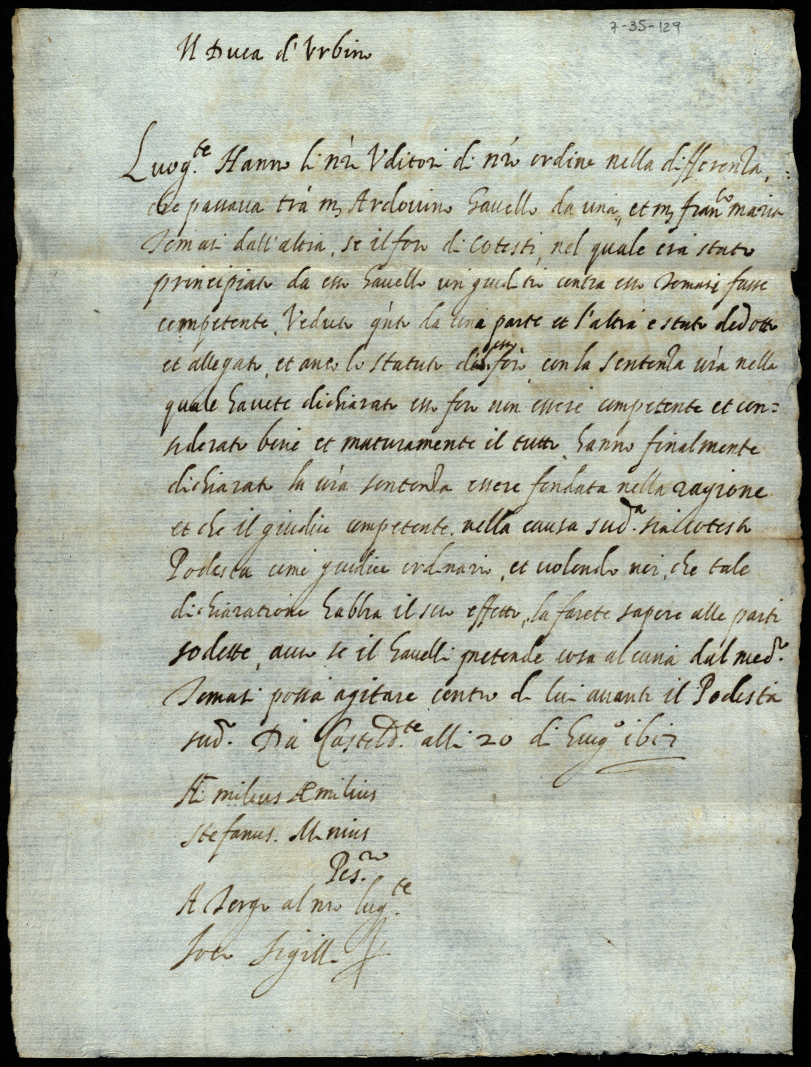 7-35-129
Il Duca d'Urbino
Luog.te Hanno li nri Uditori di nro ordine nella differenza,
che passava trà m. Ardovino Gavello da una, et m. Fran.co maria
Tomasi dall'altra, se il foro di cotesti, nel quale era stato
principiato da esso Gavello un giuditio contra esso Tomasi fusse
competente, Veduto q'nto da una parte et l'altra è stato dedotto
et allegato, et anco lo statuto di esso foro con la sentenza vr̃a nella
quale havete dichiarato esso foro non essere competente et con=
siderato bene et maturamente il tutto, hanno finalmente
dichiarato la vr̃a sentenza essere fondata nella ragione
et che il giudice competente nella causa sud.a sia cotesto
Podestà come giudice ordinario, et volendo noi, che tale
dichiaratione habbia il suo effetto, la farete sapere alle parti
sodette, acciò se il Gavelli pretende cosa alcuna dal med.o
Tomasi possa agitare contro di lui avanti il Podestà
sud.o Da Casteld.te alli 20 di Giug.o
Æmilius Æmilius
Stefanus.
Pes.ro
A Tergo al nro luog.te
Loco Sigilli